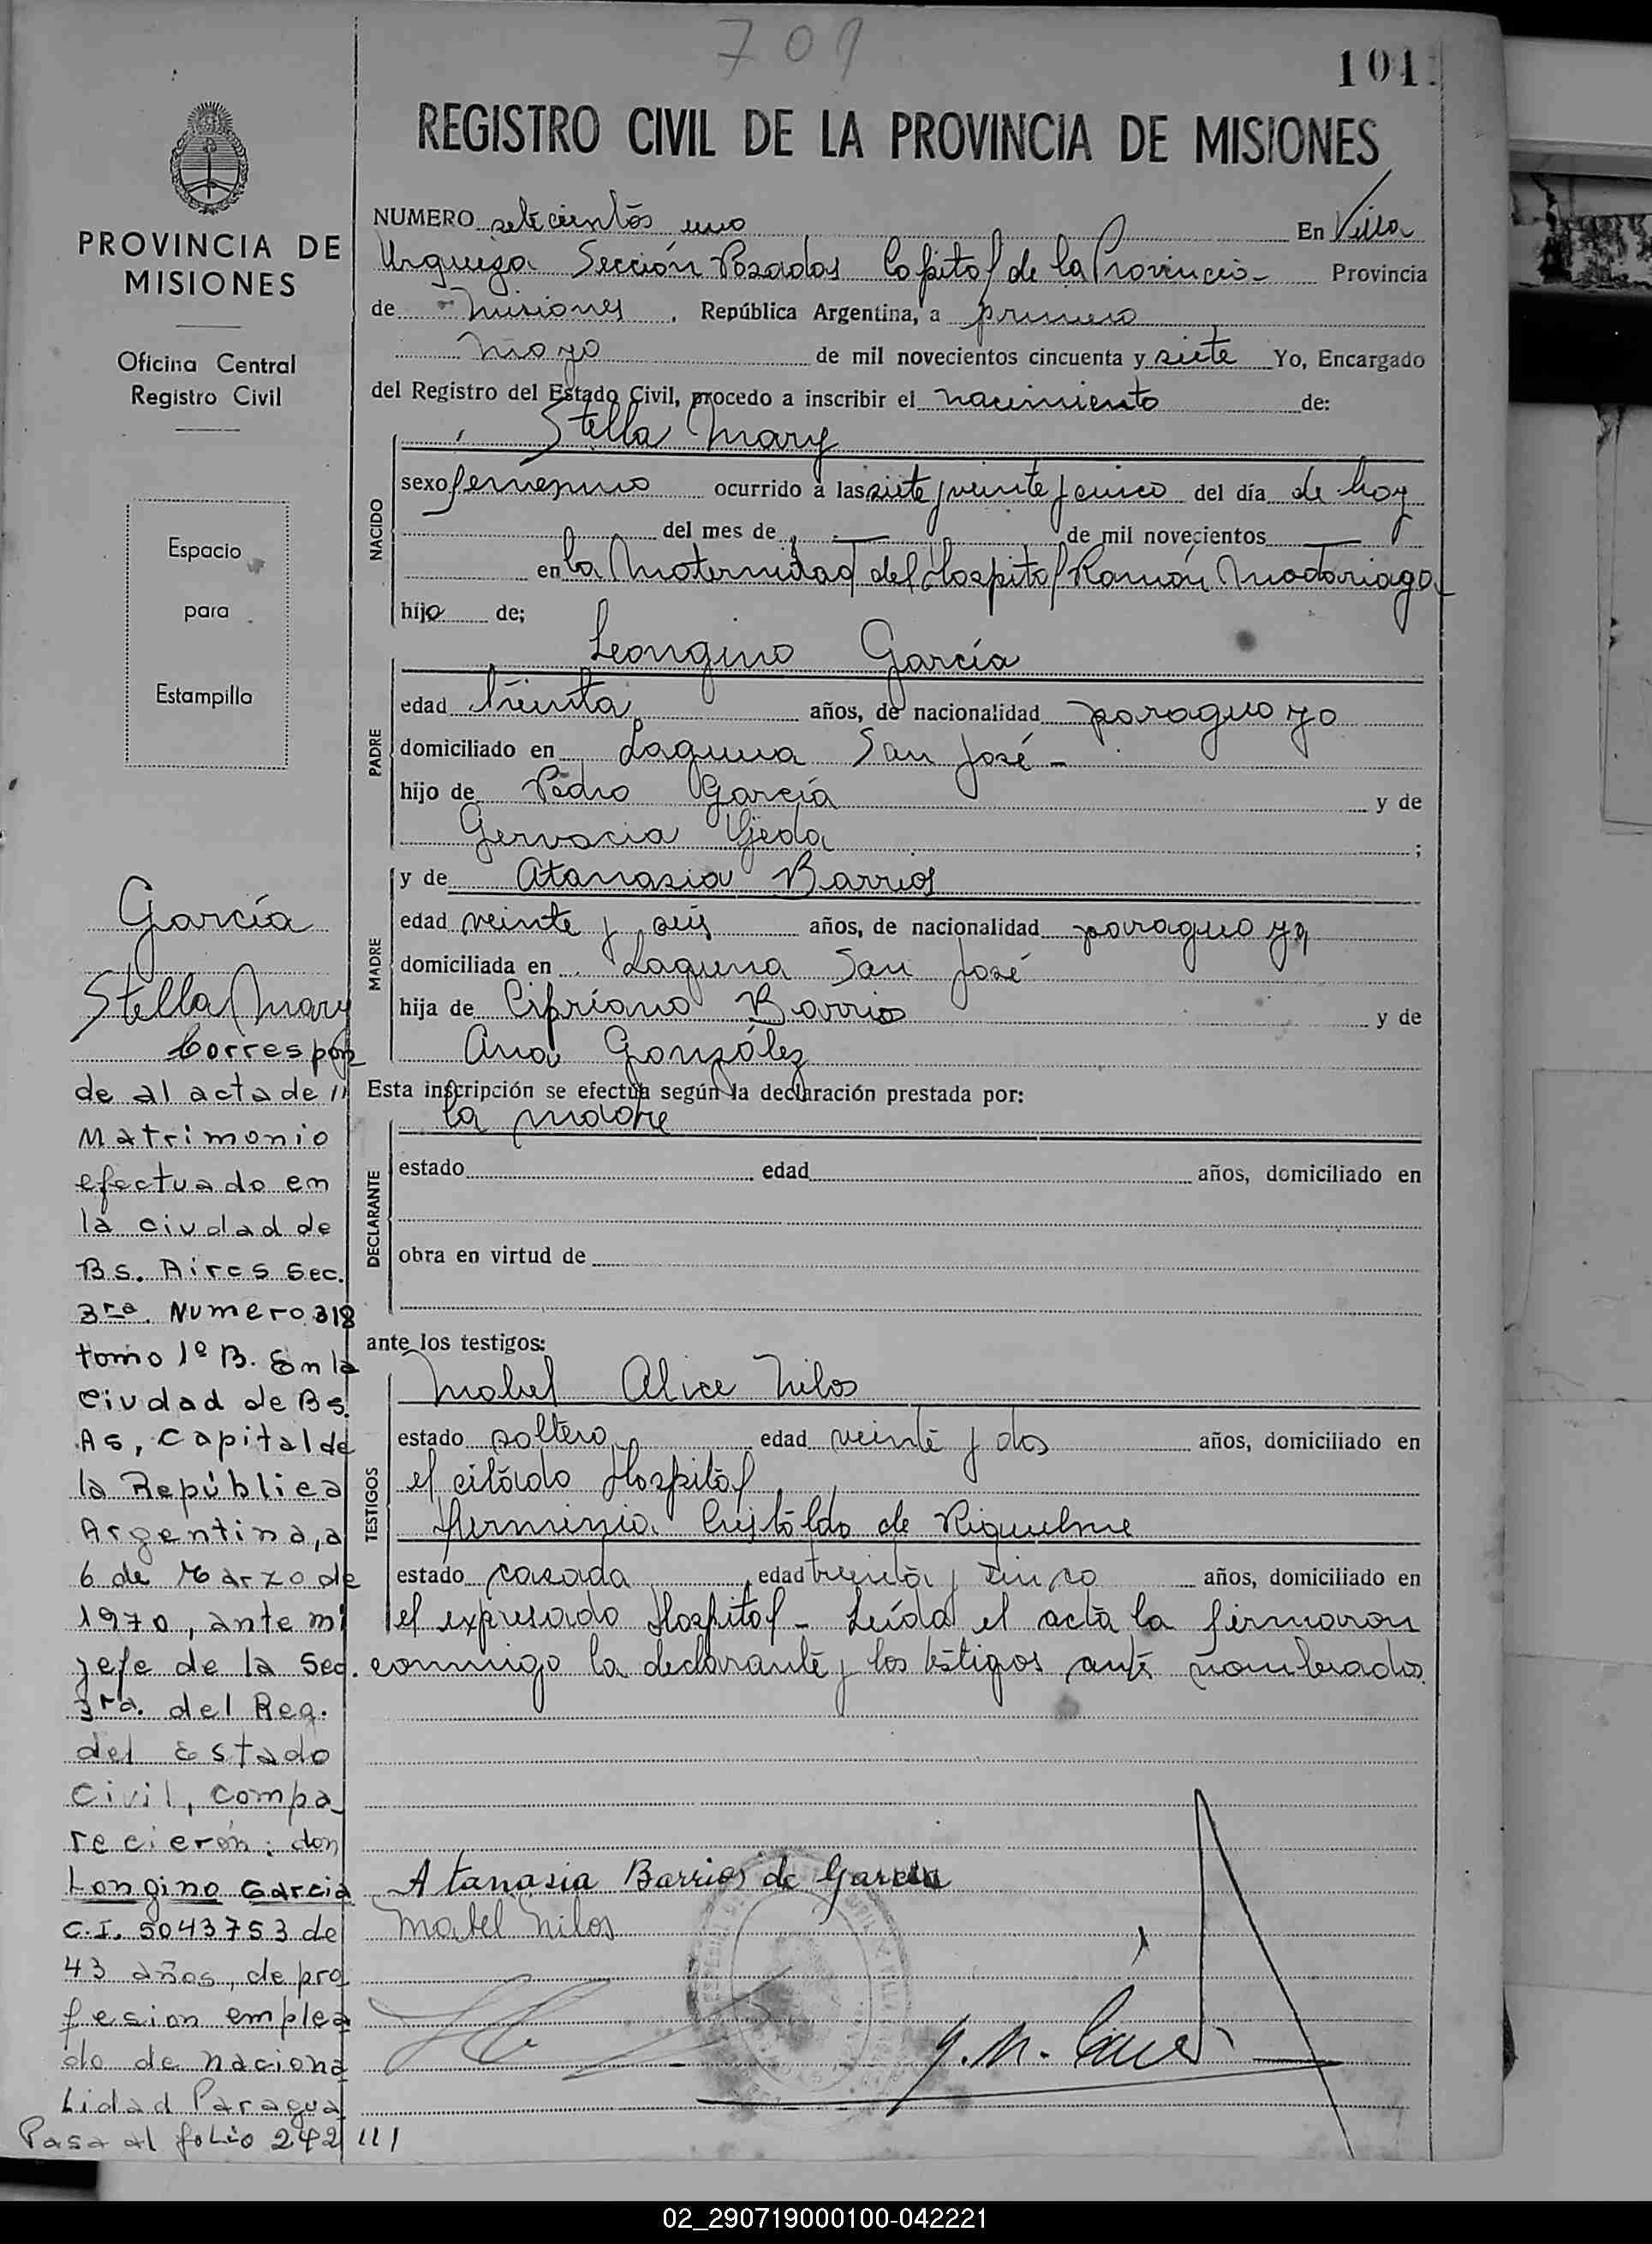 701
101
REGISTRO CIVIL DE LA PROVINCIA DE MISIONES
PROVINCIA DE
MISIONES
Oficina Central
Registro Civil
Espacio
para
Estampilla
NUMERO setecientos uno En Villa
Urquiza Sección Posadas Capital de la Provincia - Provincia
de Misiones, República Argentina, a primero
mayo de mil novecientos cincuenta y siete Yo, Encargado
del Registro del Estado Civil, procedo a inscribir el nacimiento de:
Stella Mary
NACIDO
sexo femenino ocurrido a las siete y veinte y cinco del día de hoy
del mes de — de mil novecientos —
en la Maternidad del Hospital Ramón Madariaga
hijo de;
Leongino García
PADRE
edad treinta años, de nacionalidad paraguayo
domiciliado en Laguna San José -
hijo de Pedro García y de
Gervacia Ojeda ;
y de Atanasia Barrios
MADRE
edad veinte y seis años, de nacionalidad paraguaya
domiciliada en Laguna San José
hija de Cipriano Barrios y de
Ana González
Esta inscripción se efectúa según la declaración prestada por:
la madre
DECLARANTE
estado edad años, domiciliado en
obra en virtud de
ante los testigos:
Mabel Alice Nilos
TESTIGOS
estado soltera edad veinte y dos años, domiciliado en
el citado Hospital
Herminia Cristaldo de Riquelme
estado casada edad treinta y cinco años, domiciliado en
el expresado Hospital - Leída el acta la firmaron
conmigo la declarante y los testigos ante nombrados.
Atanasia Barrios de Garcia
Mabel Nilos
García
Stella Mary
Correspon
de al acta de //
Matrimonio
efectuado en
la ciudad de
Bs. Aires Sec.
3ra. Numero 318
tomo 1º B. En la
Ciudad de Bs.
As, Capital de
la República
Argentina, a
6 de Marzo de
1970, ante mi
jefe de la Sec.
3ra. del Reg.
del Estado
Civil, compa
recierón: don
Longino Garcia
C.I. 5043753 de
43 años, de pro
fesion emplea
do de naciona
Lidad Paragua
Pasa al folio 242 ///
02_290719000100-042221